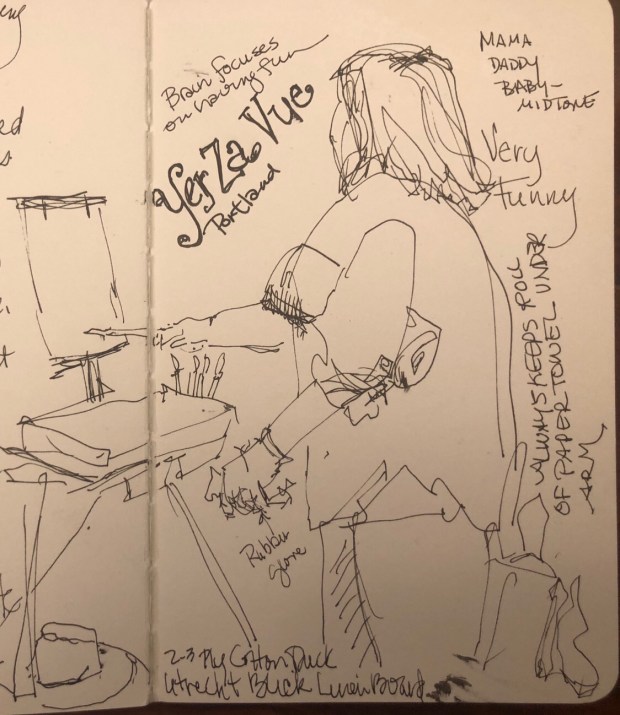 ed
Brain focuses
on having fun
Yer Za Vue
Portland
MAMA
DADDY
BABY-
MIDTONE
Very
funny
ALWAYS KEEPS ROLL
OF PAPER TOWEL UNDER
ARM
Rubber
Glove
2-3 Ply Cotton Duck
Utrecht Black Linen Board